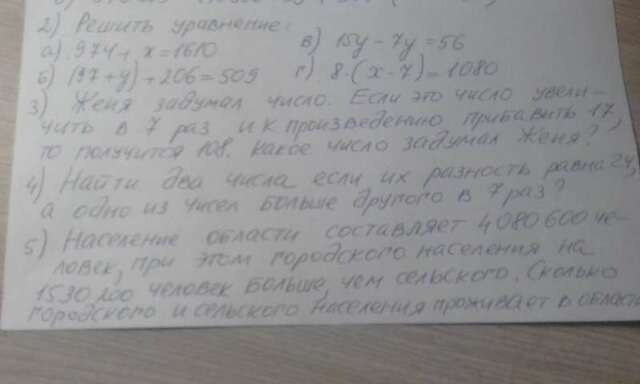 2) Решить уравнение:
а) 974 + x = 1610 в) 15y - 7y = 56
б) (37 + y) + 206 = 509 г) 8·(x - 7) = 1080
3) Женя задумал число. Если это число увели-
чить в 7 раз и к произведению прибавить 17,
то получится 108. Какое число задумал Женя?
4) Найти два числа если их разность равна 24,
а одно из чисел больше другого в 7 раз?
5) Население области составляет 4080600 че-
ловек, при этом городского населения на
1530200 человек больше, чем сельского. Сколько
городского и сельского населения проживает в области